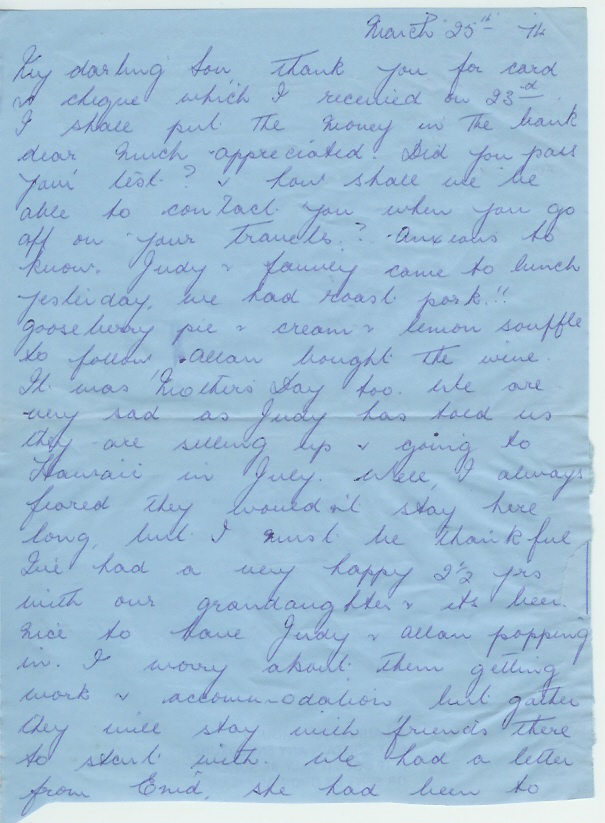 March 25th 74
My darling Son, thank you for card
& cheque which I received on 23rd
I shall put the money in the bank
dear much appreciated. Did you pass
your test? & how shall we be
able to contact you when you go
off on your travels? Anxious to
know. Judy & came to lunch
yesterday, we had roast pork!!
gooseberry pie & cream & lemon souffle
to follow. Allan bought the wine.
It was Mothers Day too. We are
very sad as Judy has told us
they are selling up & going to
Hawaii in July. Well, I always
feared they wouldn't stay here
long, but I must be thankful
I've had a very happy 2½ yrs
with our grandaughter & its been
nice to have Judy & Allan popping
in. I worry about them getting
work & accommodation but gather
they will stay with friends there
to start with. We had a letter
from Enid, she had been to